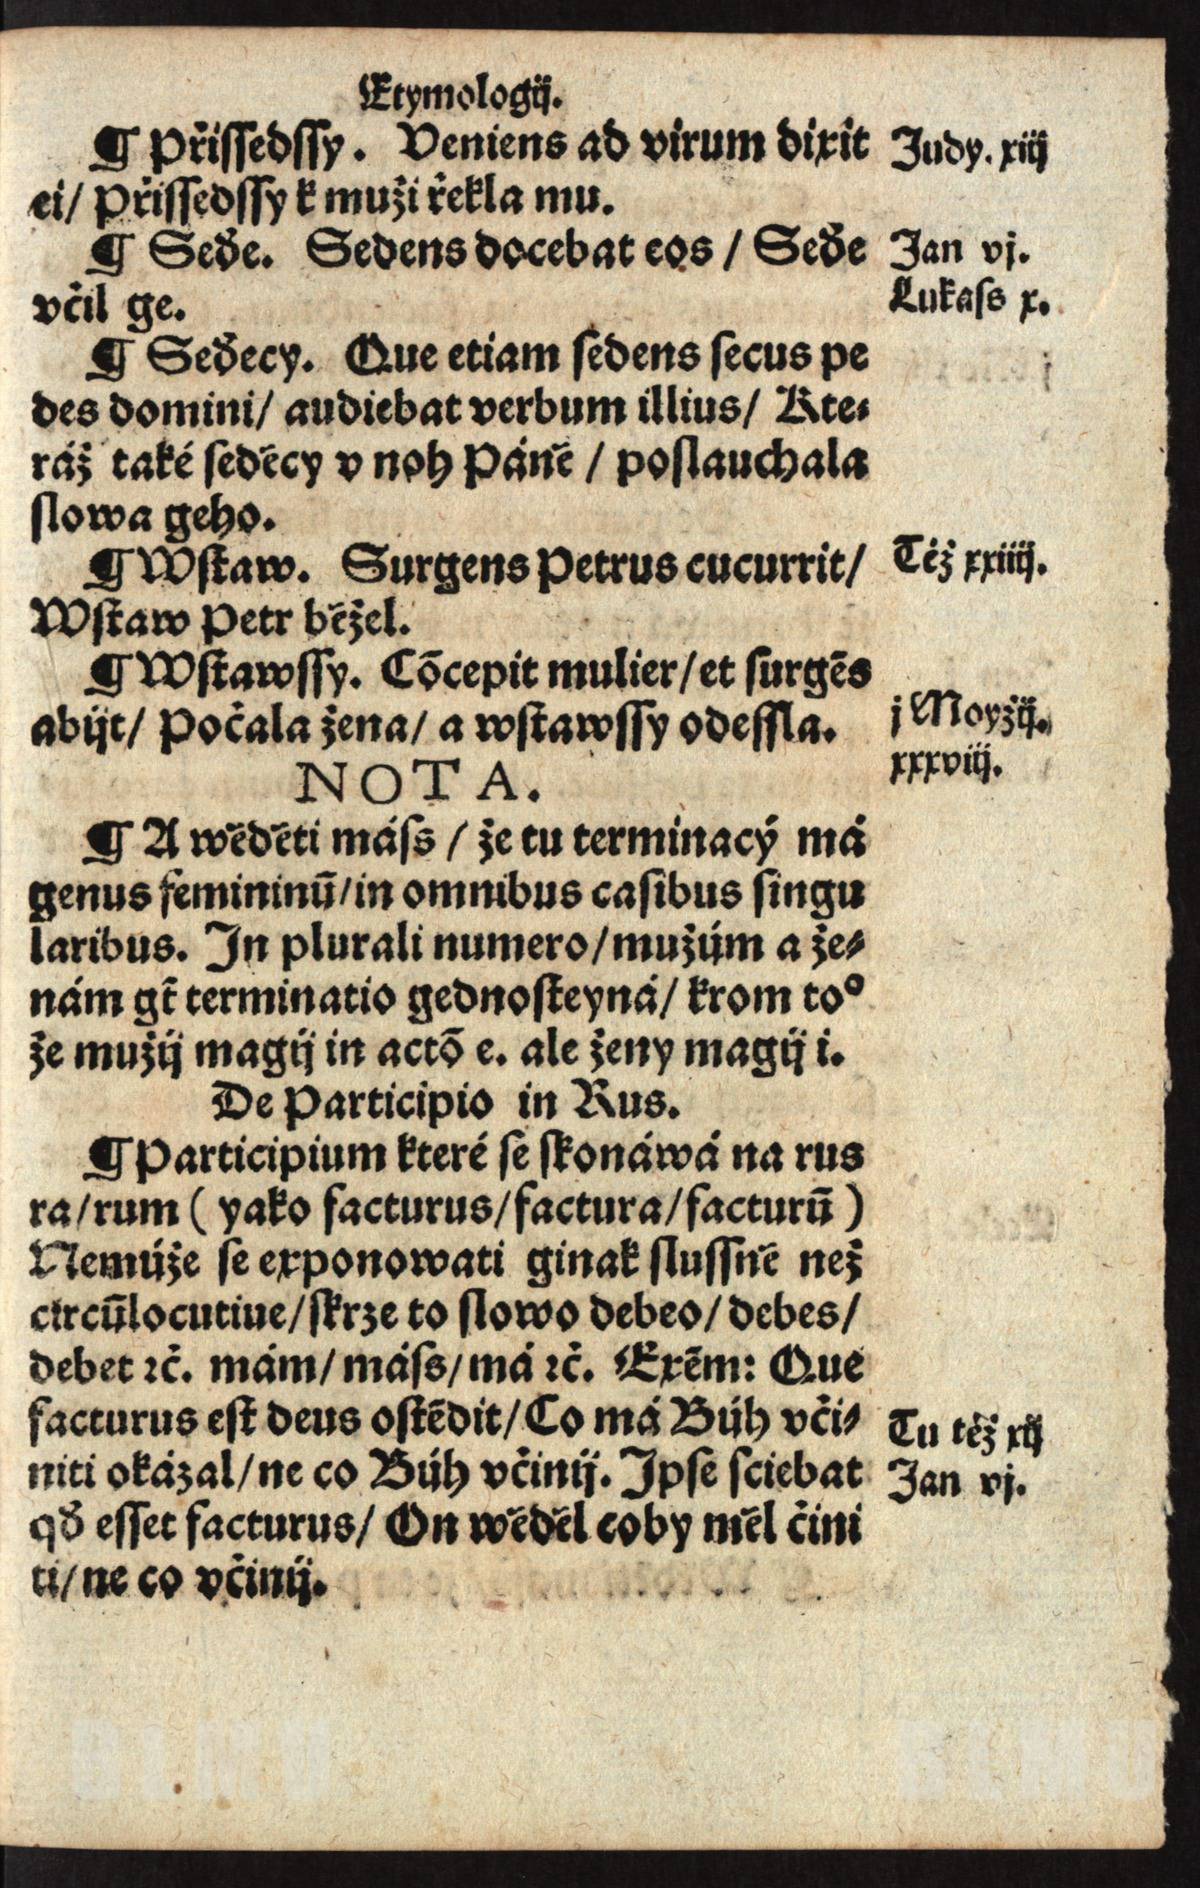 Etymologij.
¶ Přissedssy. Veniens ad virum dixit
ei/ Přissedssy k muži řekla mu.
Judy. xiij
¶ Seďe. Sedens docebat eos / Seďe
včil ge.
Jan vj.
Lukass x.
¶ Seďecy. Que etiam sedens secus pe
des domini/ audiebat verbum illius/ Kte⸗
ráž také seděcy v noh Páně / poslauchala
slowa geho.
¶ Wstaw. Surgens Petrus cucurrit/
Wstaw Petr běžel.
Též xxiiij.
¶ Wstawssy. Cōcepit mulier/ et surgēs
abijt/ Počala žena/ a wstawssy odessla.
j Moyžij.
xxxviij.
NOTA.
¶ A wěděti máss / že tu terminacý má
genus femininū/ in omnibus casibus singu
laribus. In plurali numero/ mužúm a že⸗
nám gt̄ terminatio gednosteyná/ krom toº
že mužij magij in actō e. ale ženy magij i.
De Participio in Rus.
¶ Participium které se skonáwá na rus
ra/ rum ( yako facturus/ factura/ facturū )
Nemúže se exponowati ginak slussně než
circūlocutiue/ skrze to slowo debeo/ debes/
debet ⁊č. mám/ máss/ má ⁊č. Exēm: Que
facturus est deus ostēdit/ Co má Búh vči⸗
niti okázal/ ne co Búh včinij. Ipse sciebat
qď esset facturus/ On wěděl coby měl čini
ti/ ne co včinij.
Tu též xlj
Jan vj.